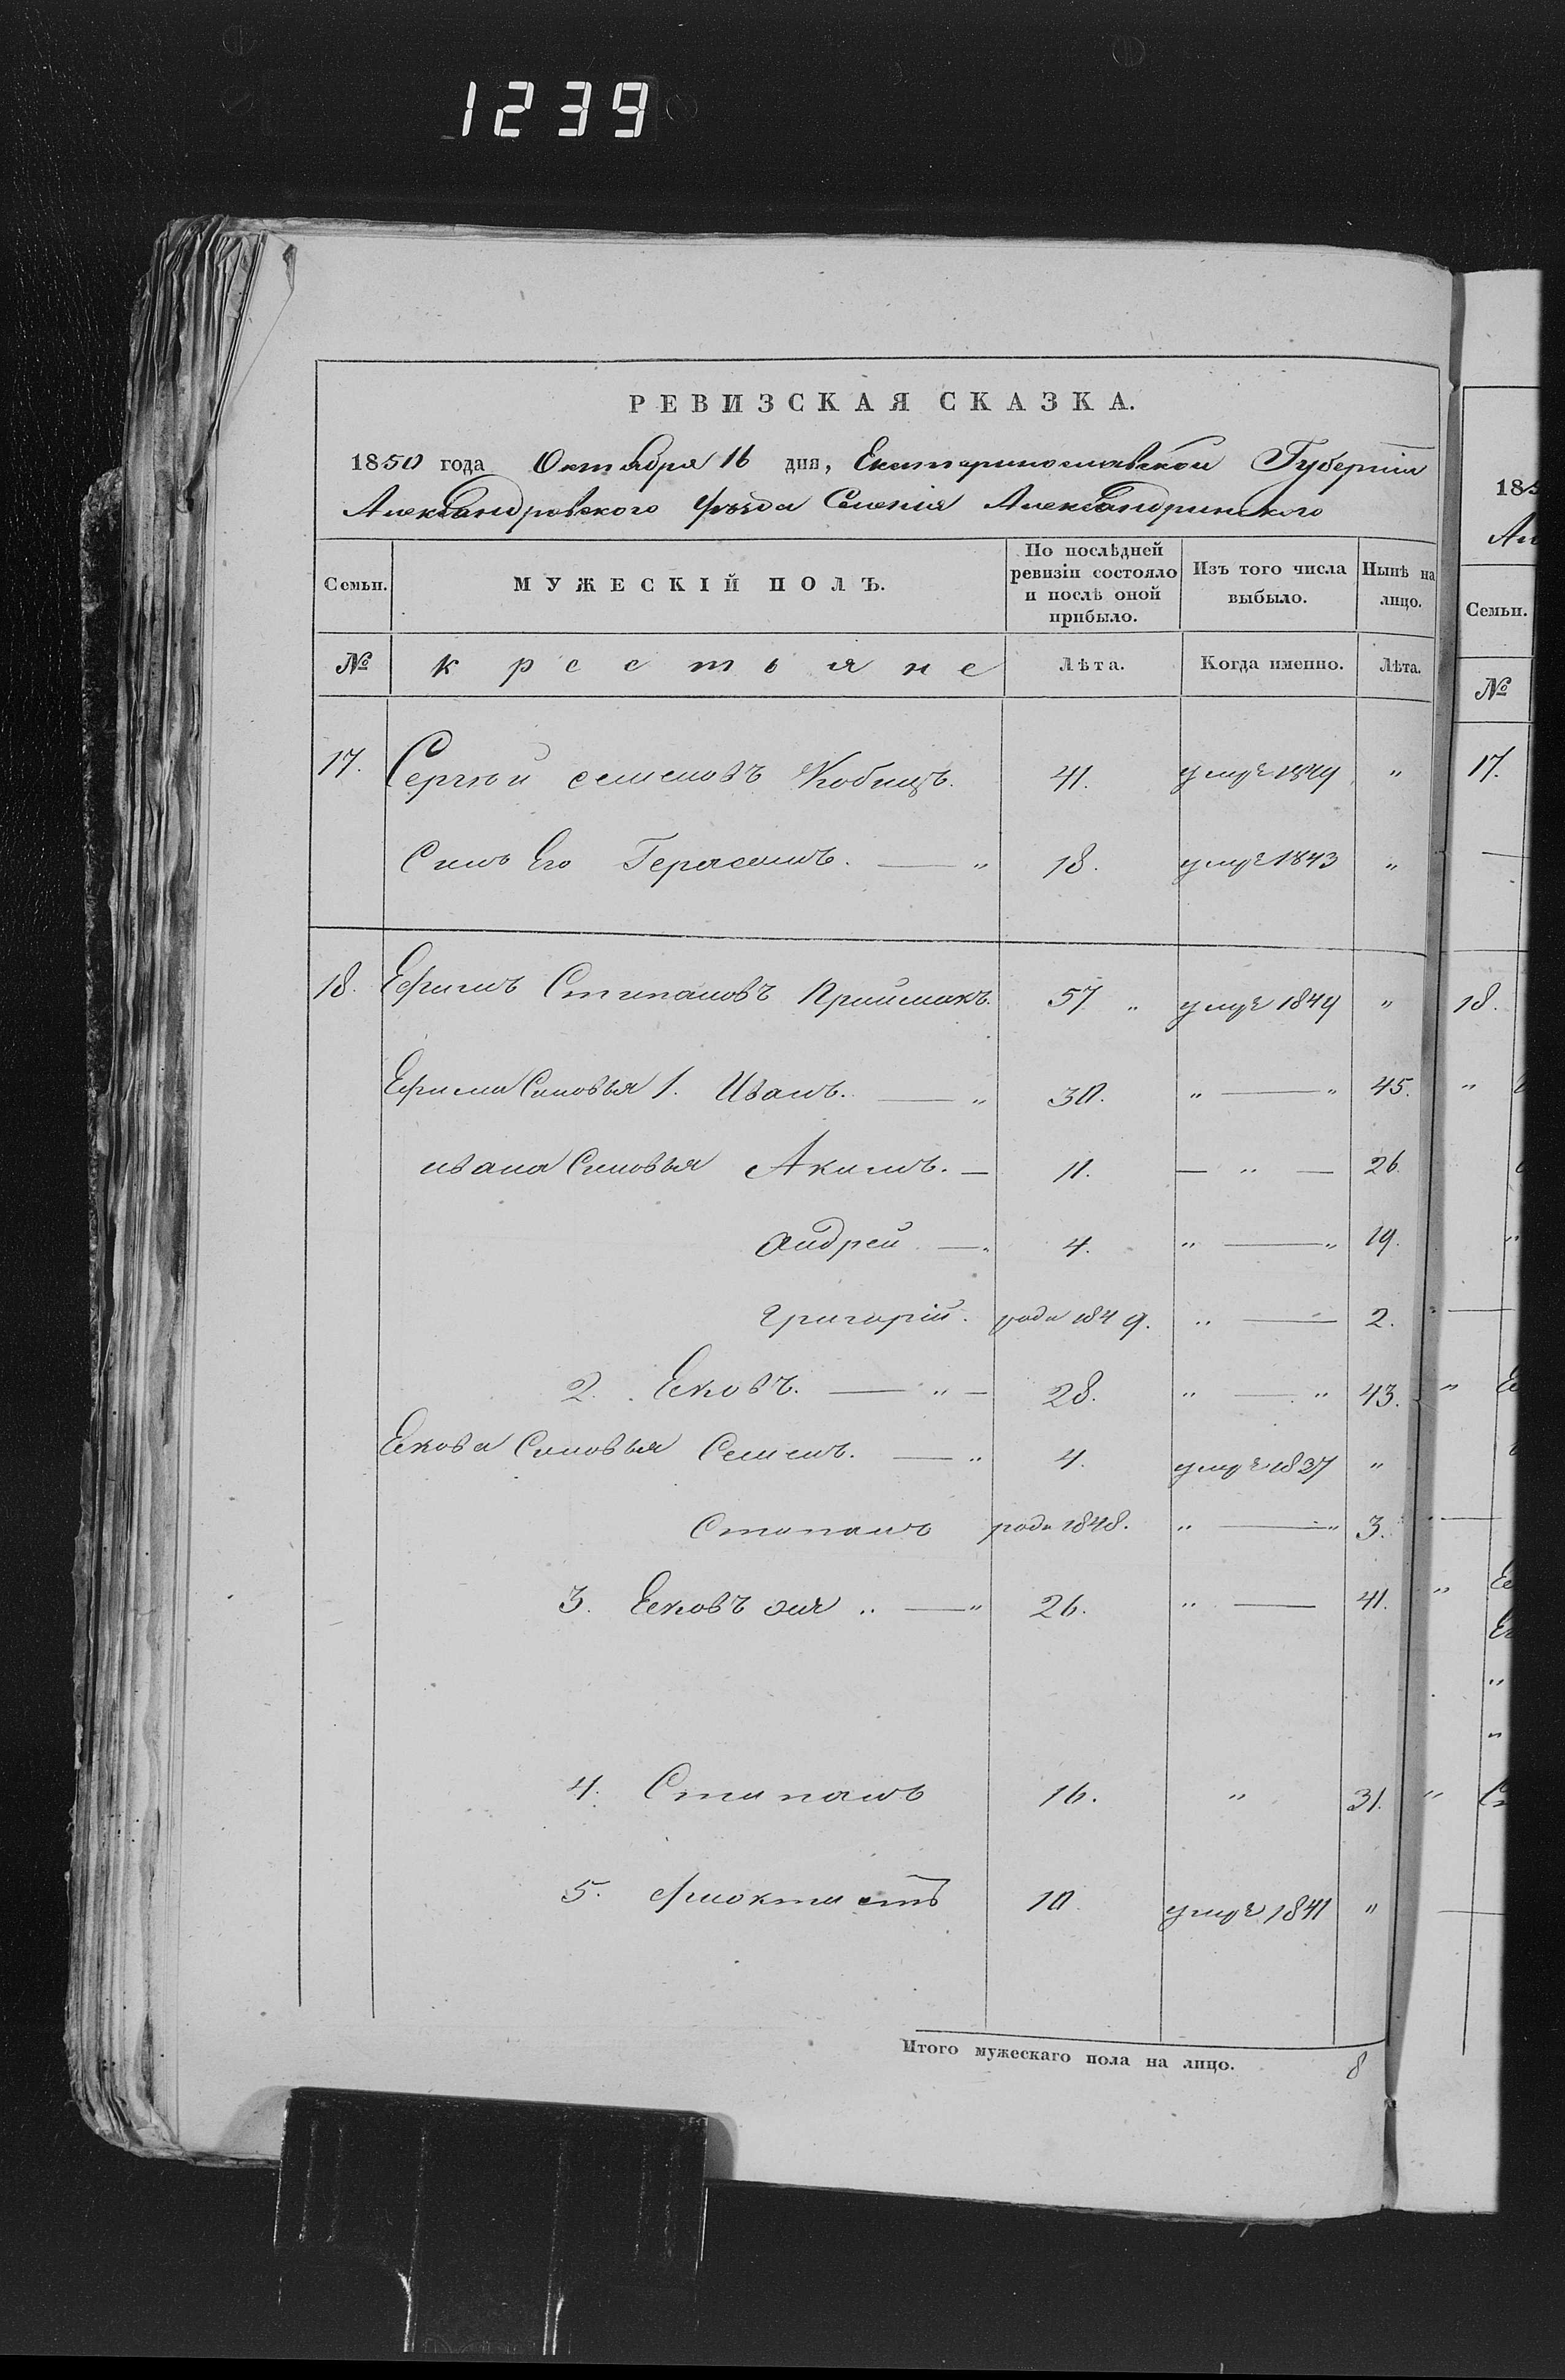 1239
РЕВИЗСКАЯ СКАЗКА.
1850 года Октября 16 дня, Екатеринославской Губерніи
Александровского уѣзда Селенія Александринского
Семьи. МУЖЕСКІЙ ПОЛЪ. По послѣдней ревизіи состояло и послѣ оной прибыло. Изъ того числа выбыло. Нынѣ на лицо.
№ крестьяне Лѣта. Когда именно. Лѣта.
17. Сергѣй семеновъ 41. умре 1849 "
Синъ Его Герасимъ. — " 18. умре 1843 "
18. Ефимъ Степановъ Приймакъ. 57 " умре 1849 "
Ефима Синовья 1. Иванъ. — " 30. " — " 45.
ивана Синовья Акимъ. — 11. — " — 26.
Андрей — " 4. " — " 19.
Григорій. роди 1849. " — 2.
2. Есковъ. — " — 28. " — " 43.
Ескова Синовья Семенъ. — " 4. умре 1837 "
Степанъ роди 1848. " — " 3.
3. Есковъ " — " 26. " — 41.
4. Степанъ 16. " 31.
5. Фиоктистъ 10 умре 1841 "
Итого мужескаго пола на лицо. 8
185
Ал
Семьи.
№
17.
18.